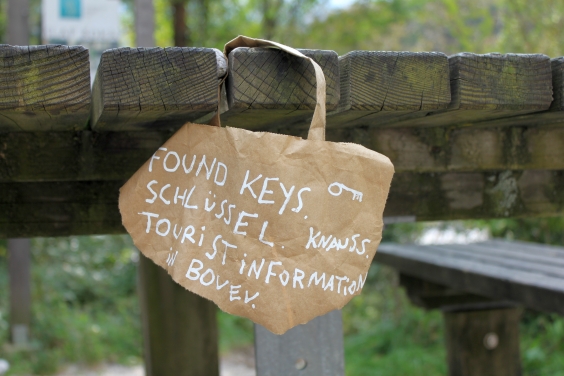 FOUND KEYS.
SCHLÜSSEL. KNAUSS.
TOURIST INFORMATION
IN BOVEV.